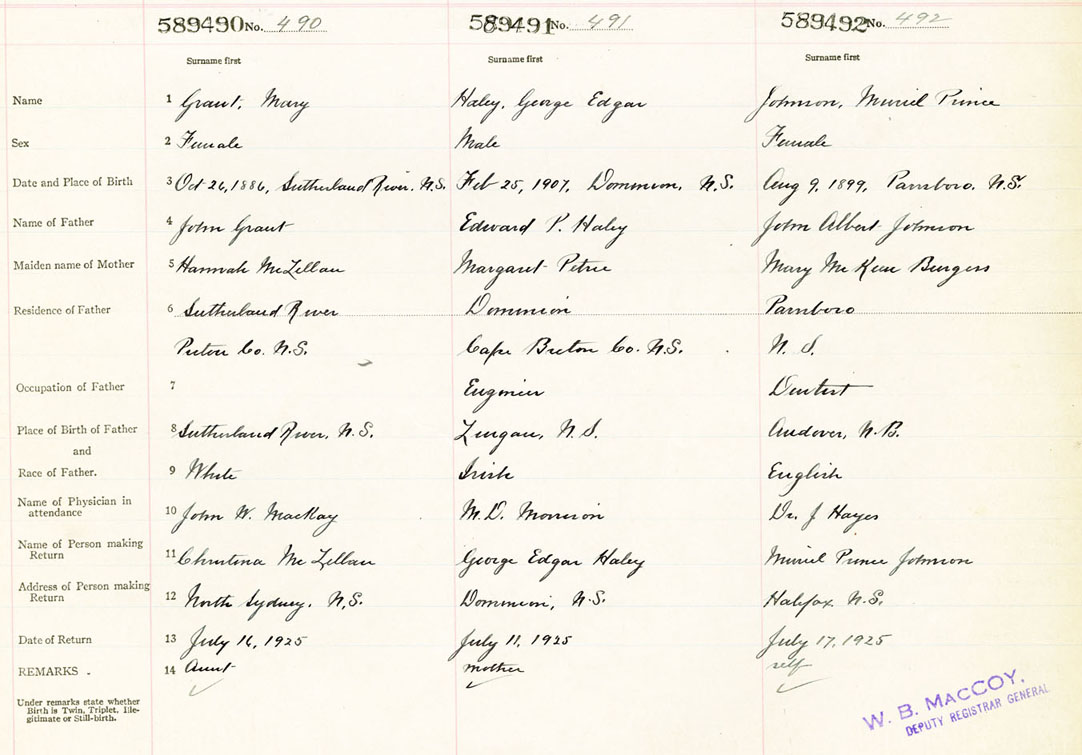 589490 No. 490 589491 No. 491 589492 No. 492
Surname first Surname first Surname first
Name 1 Grant, Mary Haley, George Edgar Johnson, Muriel Prince
Sex 2 Female Male Female
Date and Place of Birth 3 Oct 26, 1886, Sutherland River, N.S. Feb 25, 1907, Dominion, N.S. Aug 9, 1899, Parrsboro, N.S.
Name of Father 4 John Grant Edward P. Haley John Albert Johnson
Maiden name of Mother 5 Hannah McLellan Margaret Petrie Mary McKean Burgess
Residence of Father 6 Sutherland River Dominion Parrsboro
Pictou Co. N.S. Cape Breton Co. N.S. N. S.
Occupation of Father 7 Engineer Dentist
Place of Birth of Father 8 Sutherland River, N.S. Lingan, N.S. Andover, N.B.
and
Race of Father. 9 White Irish English
Name of Physician in
attendance 10 John W. MacKay M.D. Morrison Dr. J Hayes
Name of Person making
Return 11 Christena McLellan George Edgar Haley Muriel Prince Johnson
Address of Person making
Return 12 North Sydney, N.S. Dominion, N.S. Halifax N.S.
Date of Return 13 July 16, 1925 July 11, 1925 July 17, 1925
REMARKS . 14 Aunt mother self
Under remarks state whether
Birth is Twin, Triplet, Ille-
gitimate or Still-birth.
W. B. MacCOY,
DEPUTY REGISTRAR GENERAL